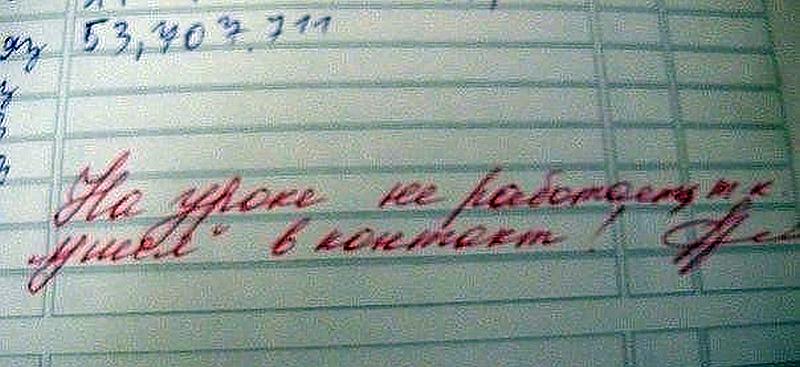 яз 53, 707. 711
На уроке не работает, т к
"ушел" в контакт!